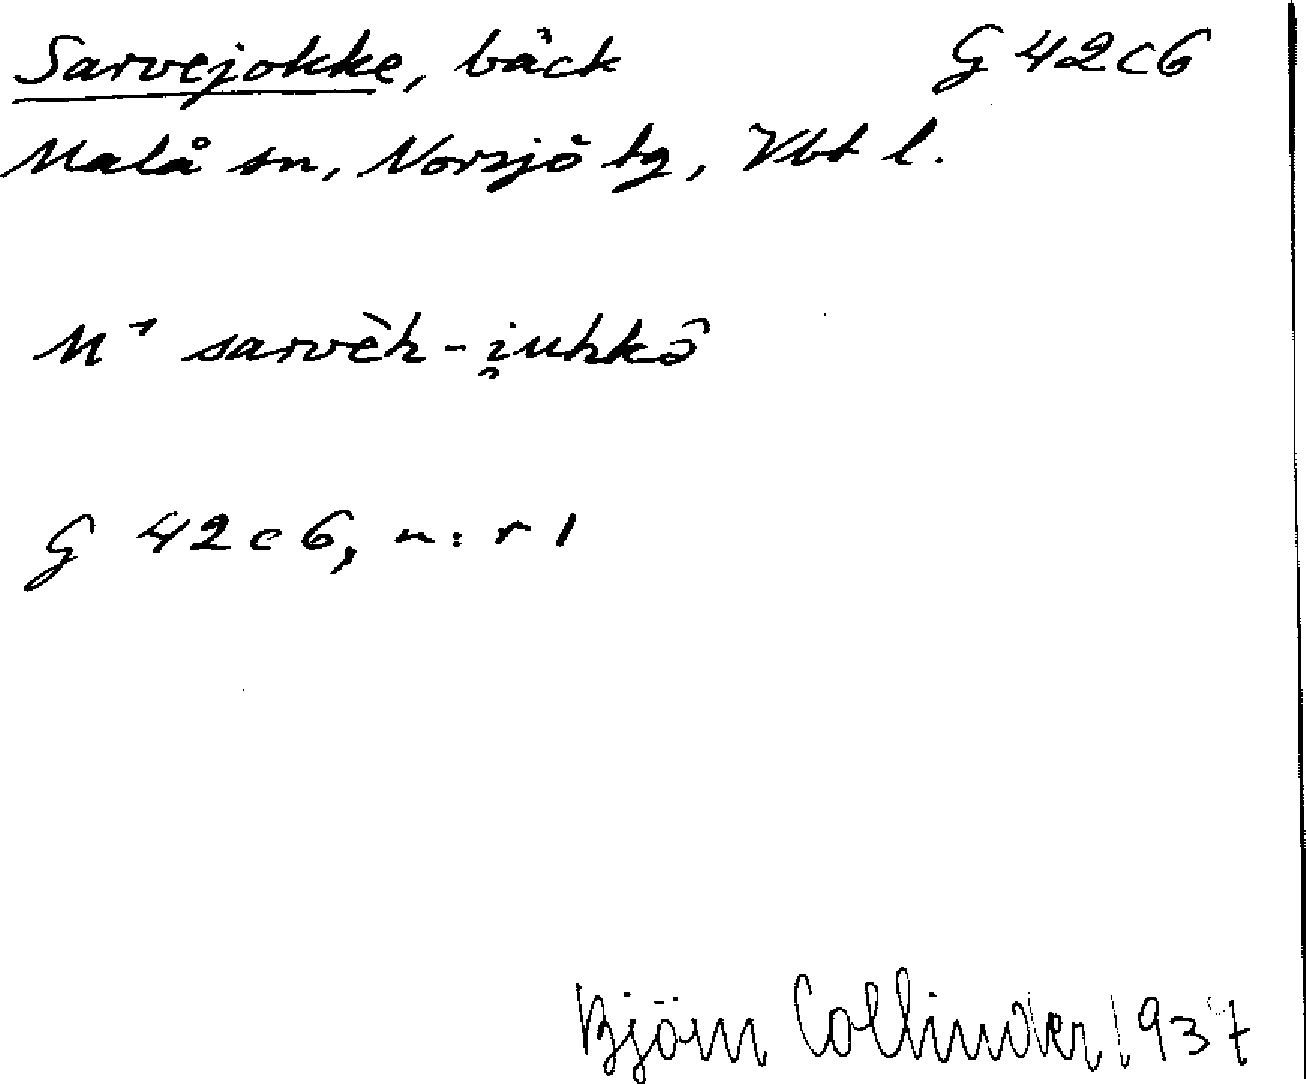 Sarvejokke, bäck G 42 c 6
Malå sn, Norsjö tg, Vbt l.
M¹ sarvèh - i̯uhkô
G 42 c 6, n:r 1
Björn Collinder 1937